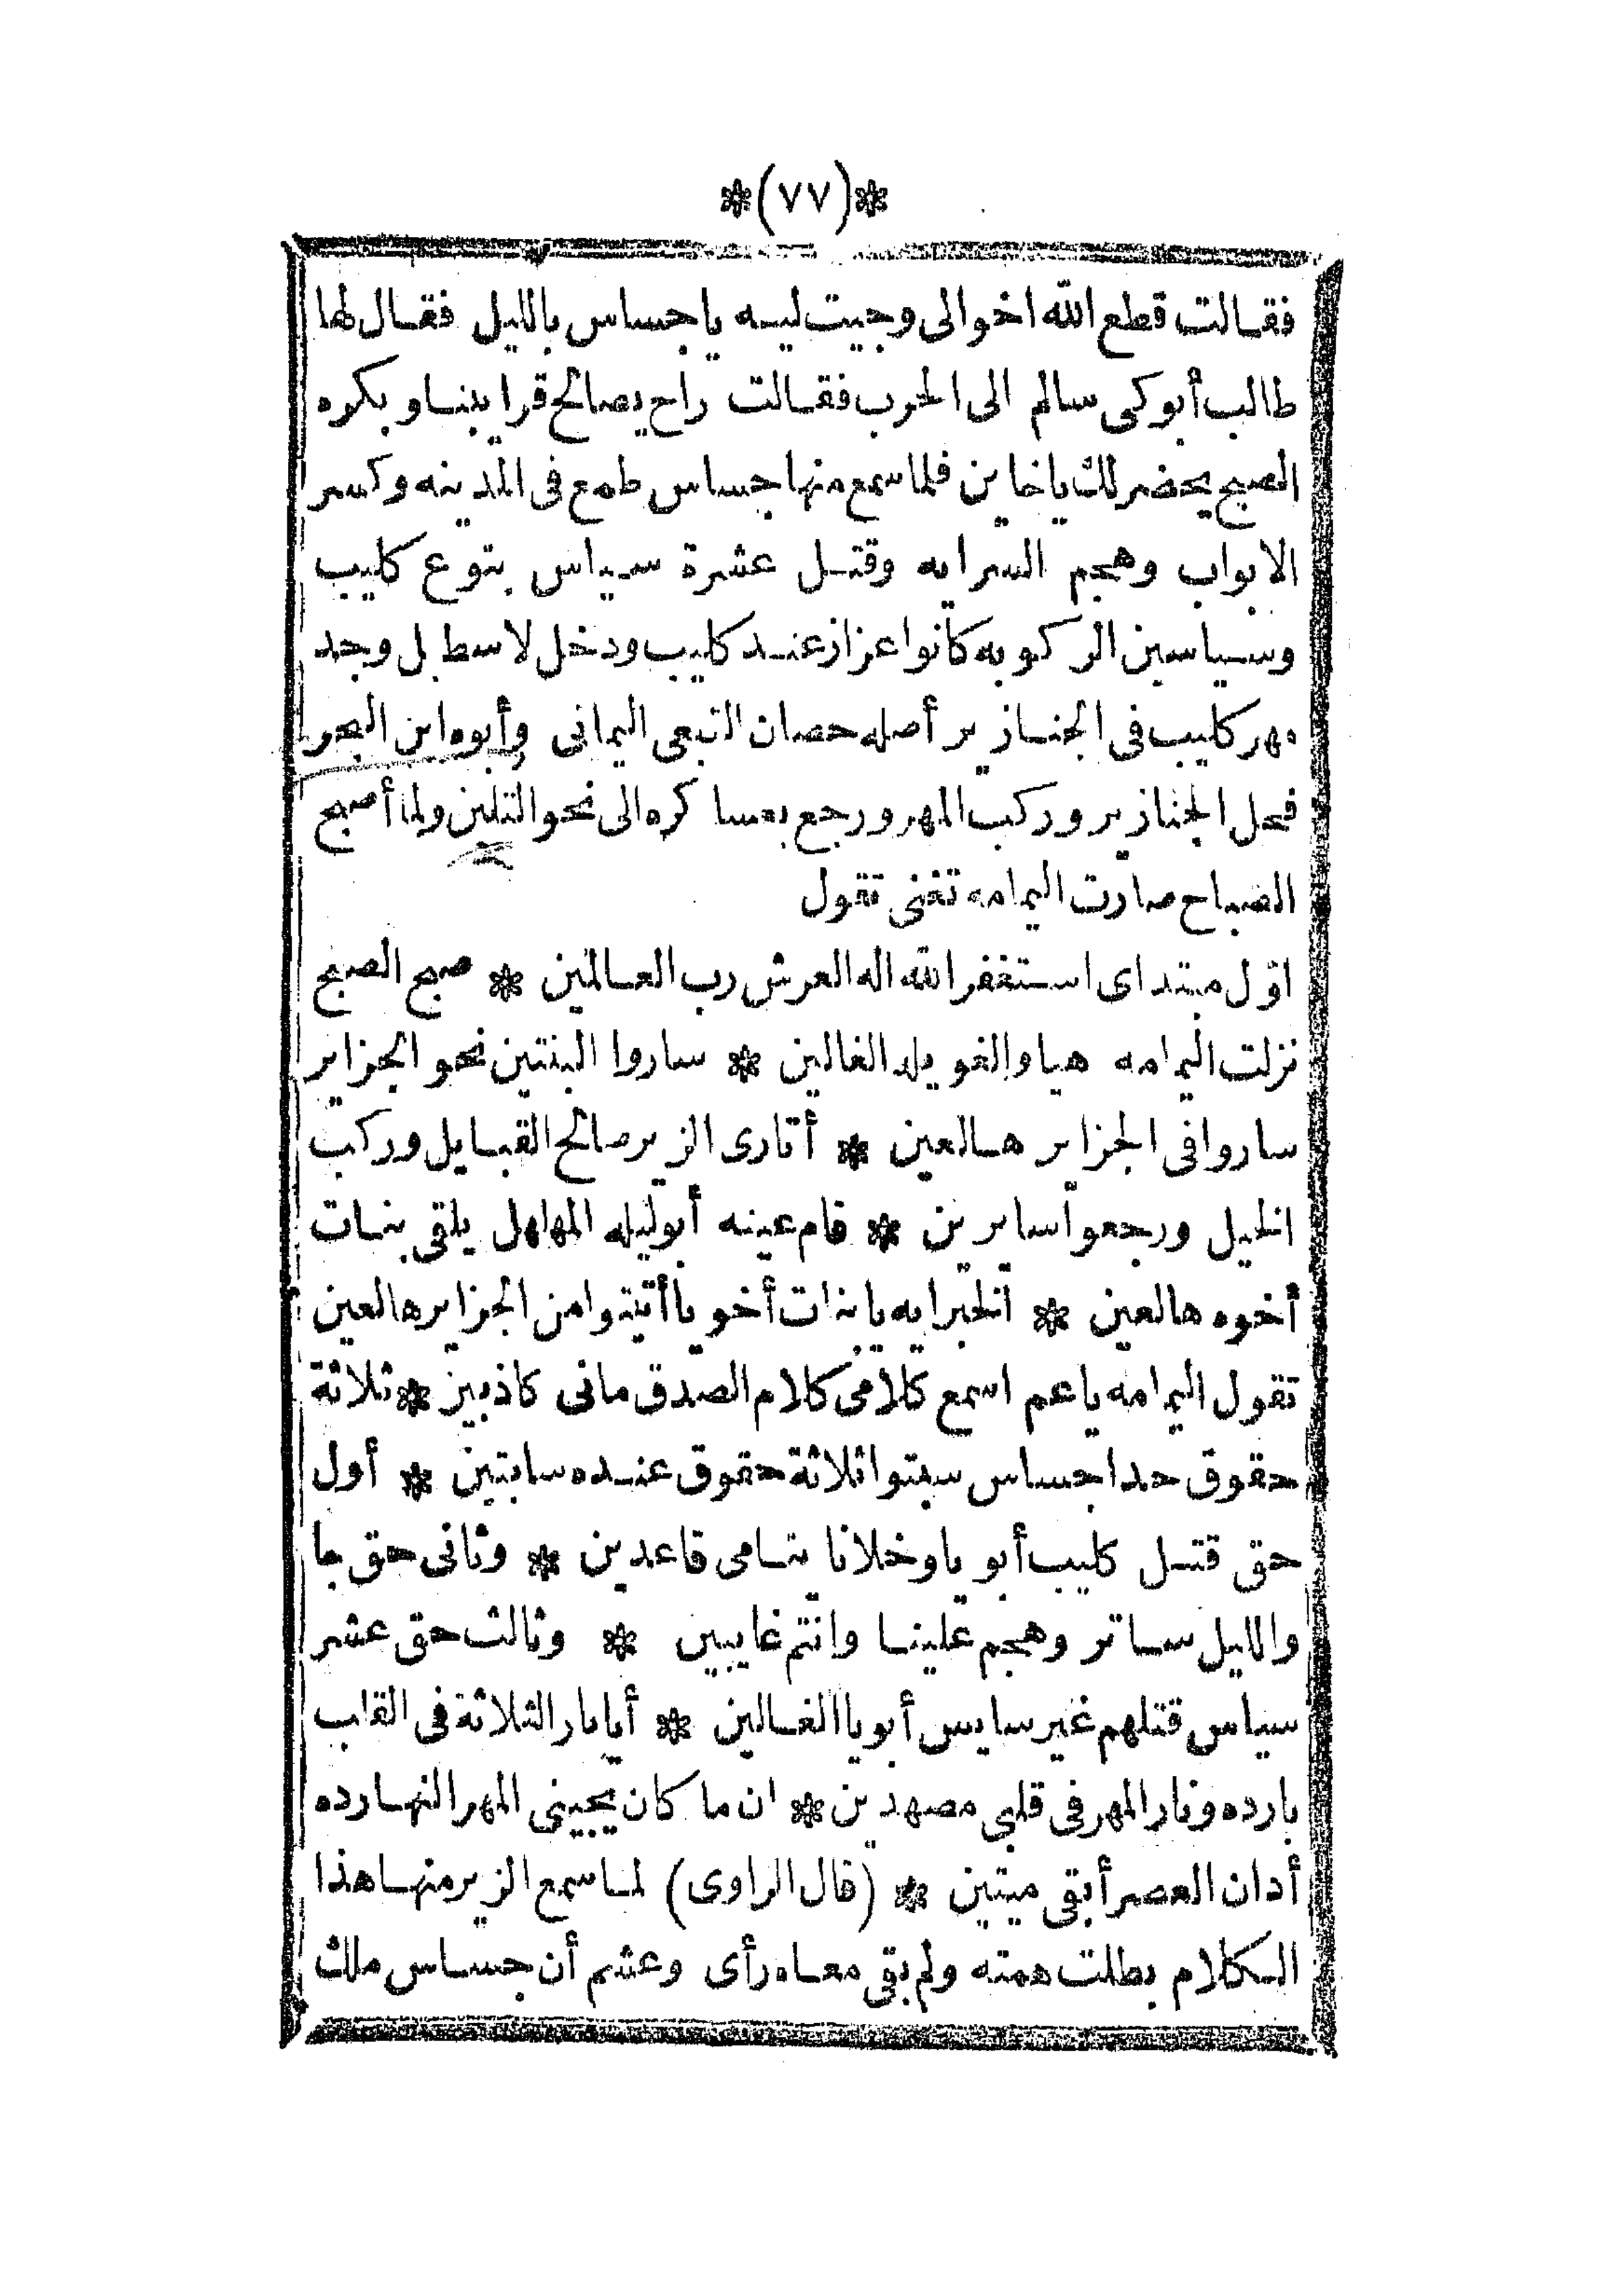 *(٧٧)*
فقالت قطع الله اخوالى وجيت ليه ياجساس بالليل فقال لها
طالب أبوكى سالم الى الحرب فقالت راح يصالح قرايبنا وبكره
الصبح يحضر لك ياخاين فلما سمع منها جساس طمع فى المدينه وكسر
الابواب وهجم السرايه وقتل عشرة سياس بتوع كليب
وسياسين الركوبه كانوا عزاز عند كليب ودخل لاسطبل وجد
مهر كليب فى الجنازير أصله حصان التبعى اليمانى وأبوه ابن البحر
فحل الجنازير وركب المهر ورجع بعساكره الى نحو التلين ولما أصبح
الصباح صارت اليمامه تغنى تقول
اوّل مبتداى استغفر الله اله العرش رب العالمين * صبح الصبح
نزلت اليمامه هيا والغويله الغالين * ساروا البنتين نحو الجزاير
ساروا فى الجزاير هالعين * أتارى الزير صالح القبايل وركب
الخيل ورجعوا سايرين * قام عينه أبو ليله المهلهل يلقى بنات
أخوه هالعين * الخبر ايه يا بنات أخويا أتيتوا من الجزاير هالعين
تقول اليمامه ياعم اسمع كلامى كلام الصدق مانى كاذبين * ثلاثة
حقوق حدا جساس سبتوا ثلاثة حقوق عنده سابتين * أول
حق قتل كليب أبويا وخلانا يتامى قاعدين * وثانى حق جا
والليل ساتر وهجم علينا وانتم غايبين * وثالث حق عشر
سياس قتلهم غير سايس أبويا الغالين * أيا نار الثلاثة فى القلب
بارده ونار المهر فى قلبى مصهدين * ان ما كان يجينى المهر النهارده
أدان العصر أبقى ميتين * (قال الراوى) لما سمع الزير منها هذا
الكلام بطلت همته ولم بقى معاه رأى وعشم أن جساس ملك